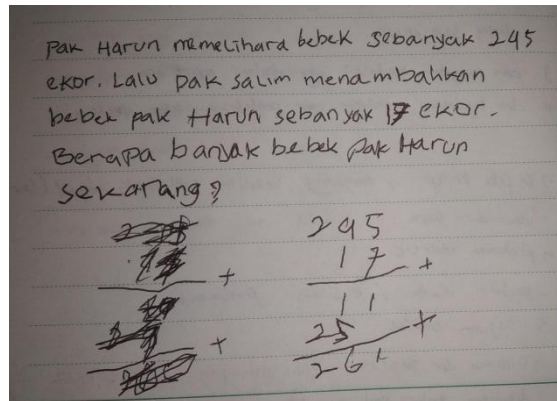 Pak Harun memelihara bebek sebanyak 245
ekor. Lalu pak salim menambahkan
bebek pak Harun sebanyak 17 ekor.
Berapa banyak bebek pak Harun
sekarang?
245
17 +
11
25 +
261